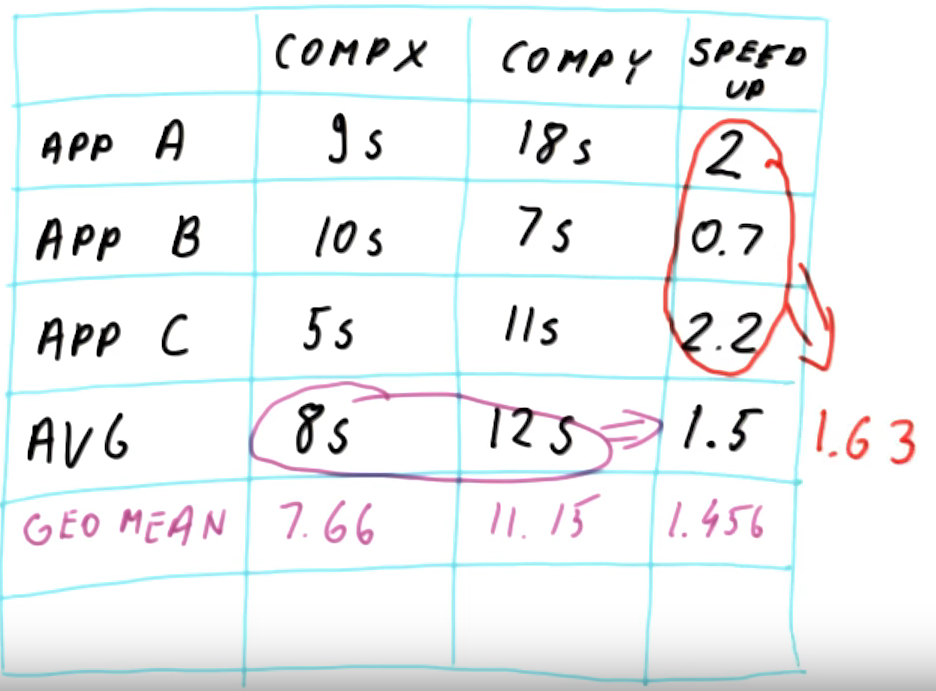 COMPX COMPY SPEED UP
APP A 9s 18s 2
APP B 10s 7s 0.7
APP C 5s 11s 2.2
AVG 8s 12s 1.5 1.63
GEOMEAN 7.66 11.15 1.456